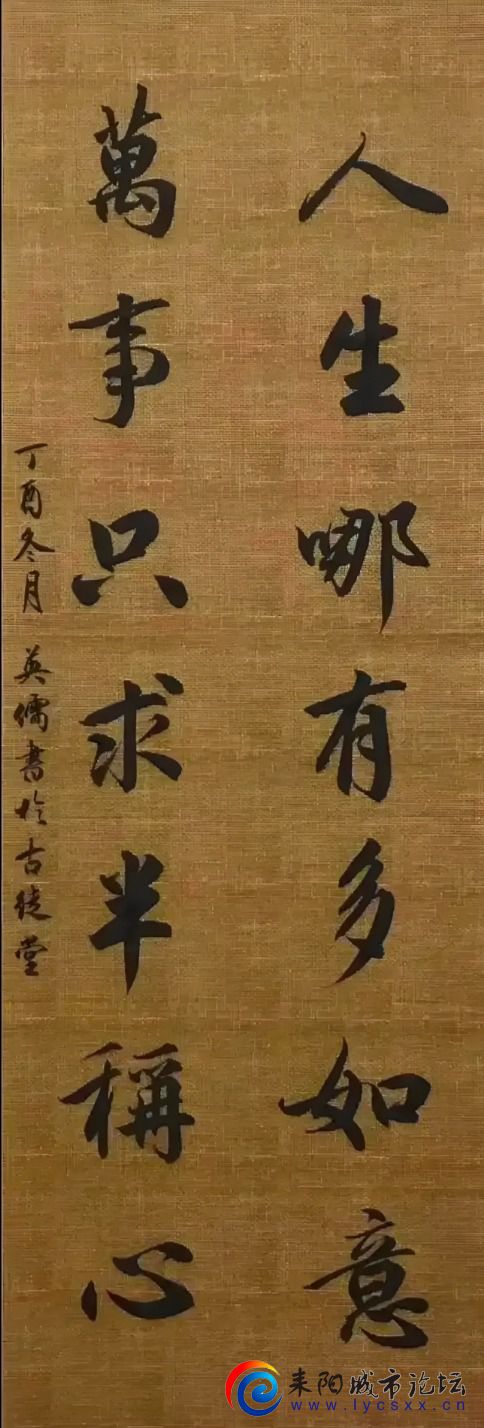 人生哪有多如意
萬事只求半稱心
丁酉冬月 英儒書於古徒堂
耒阳城市论坛
www.lycsxx.cn